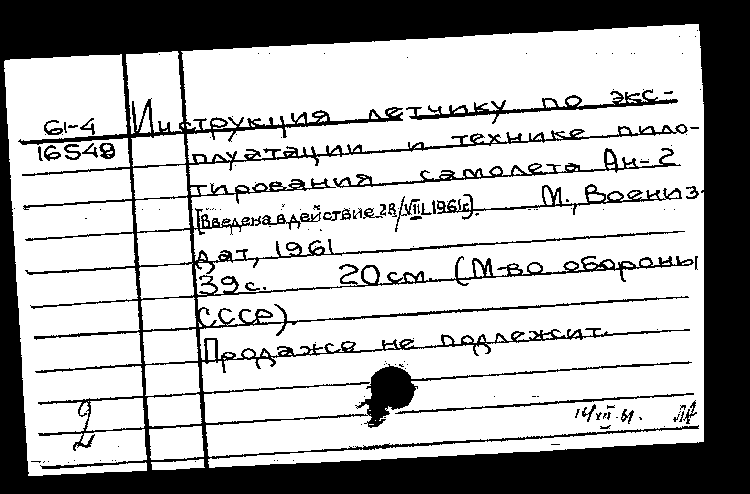 61-4
16549
Инструкция летчику по экс-
плуатации и технике пило-
тирования самолета Ан-2
[Введена в действие 28/VIII 1961г.]. М., Воениз-
дат, 1961
39с. 20см. (М-во обороны
СССР).
Продаже не подлежит.
2
14/XII-61.